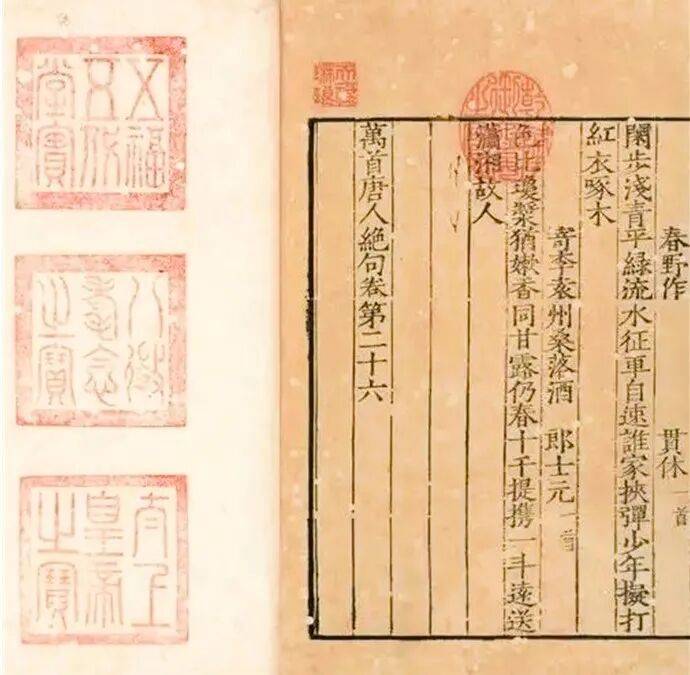 春野作 貫休一首
閑步淺青平綠流水征車自速誰家挾彈少年擬打
紅衣啄木
寄李袁州桑落酒 郎士元一首
色比瓊漿猶嫩香同甘露仍春十千提携一斗遠送
瀟湘故人
萬首唐人絶句卷第二十六
乾隆御覽之寶
天祿琳琅
五福五代堂寶
八徵耄念之寶
太上皇帝之寶